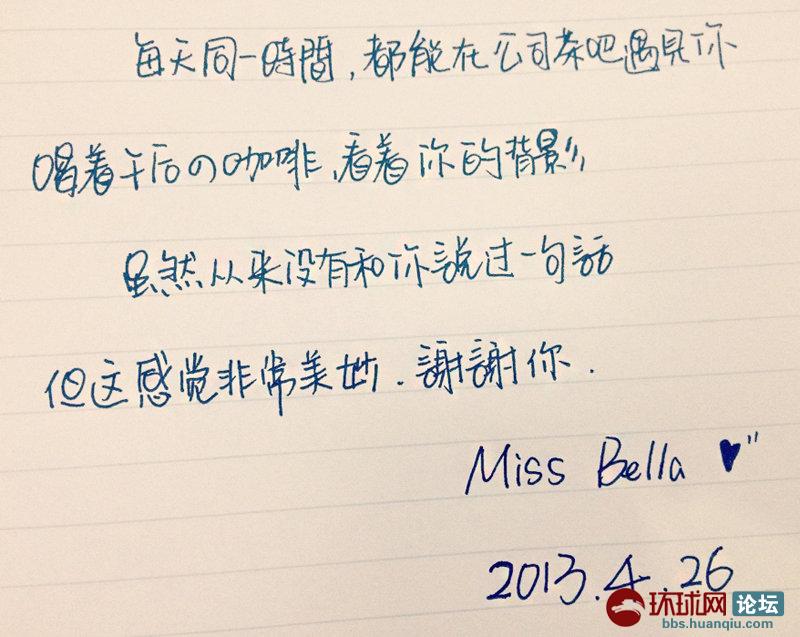 每天同一時間,都能在公司茶吧遇見你
喝着午后の咖啡,看着你的背影
虽然从来没有和你説过一句話
但这感觉非常美妙.謝謝你.
Miss Bella ♥"
2013.4.26
环球网 论坛
bbs.huanqiu.com